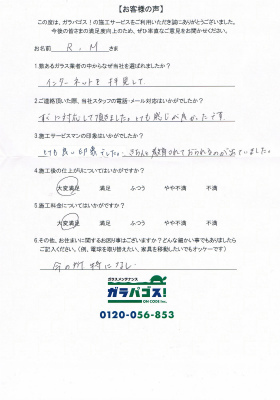 【お客様の声】
この度は、ガラパゴス！の施工サービスをご利用いただき誠にありがとうございました。
今後の皆さまの満足度向上のため、ぜひ率直なご意見をお聞かせください。
お名前 R.M さま
1.数あるガラス業者の中からなぜ当社を選ばれましたか？
インターネットを拝見して
2.ご連絡頂いた際、当社スタッフの電話・メール対応はいかがでしたか？
すぐに対応して頂きました。とても感じが良かったです。
3.施工サービスマンの印象はいかがでしたか？
とても良い印象でした。きちんと教育されておられるのが出ていました。
4.施工後の仕上がりについてはいかがですか？
大変満足 満足 ふつう やや不満 不満
5.施工料金についてはいかがですか？
大変満足 満足 ふつう やや不満 不満
6.その他、お住まいに関するお困り事はございますか？どんな細かい事でもありましたら
ご記入ください。（例、電球を取り替えたい、家具を移動したいでもオッケーです）
今の所特になし
ガラスメンテナンス
ガラパゴス！
ON CODE Inc.
0120-056-853